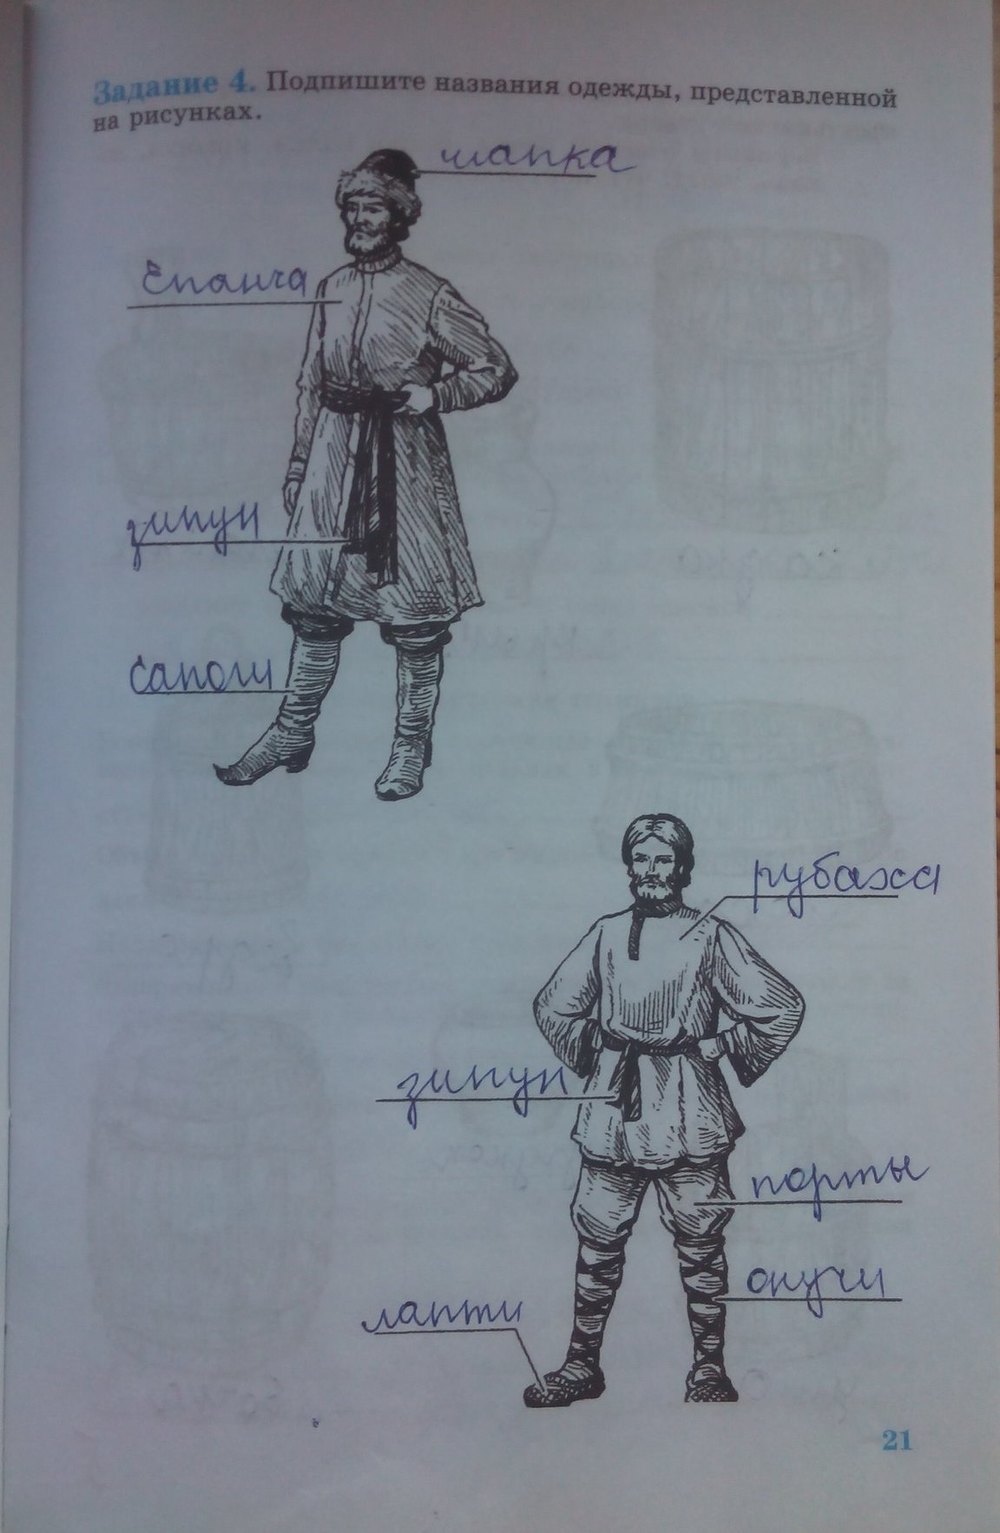 Задание 4. Подпишите названия одежды, представленной
на рисунках.
шапка
Епанча
зипун
сапоги
рубаха
зипун
порты
онучи
лапти
21